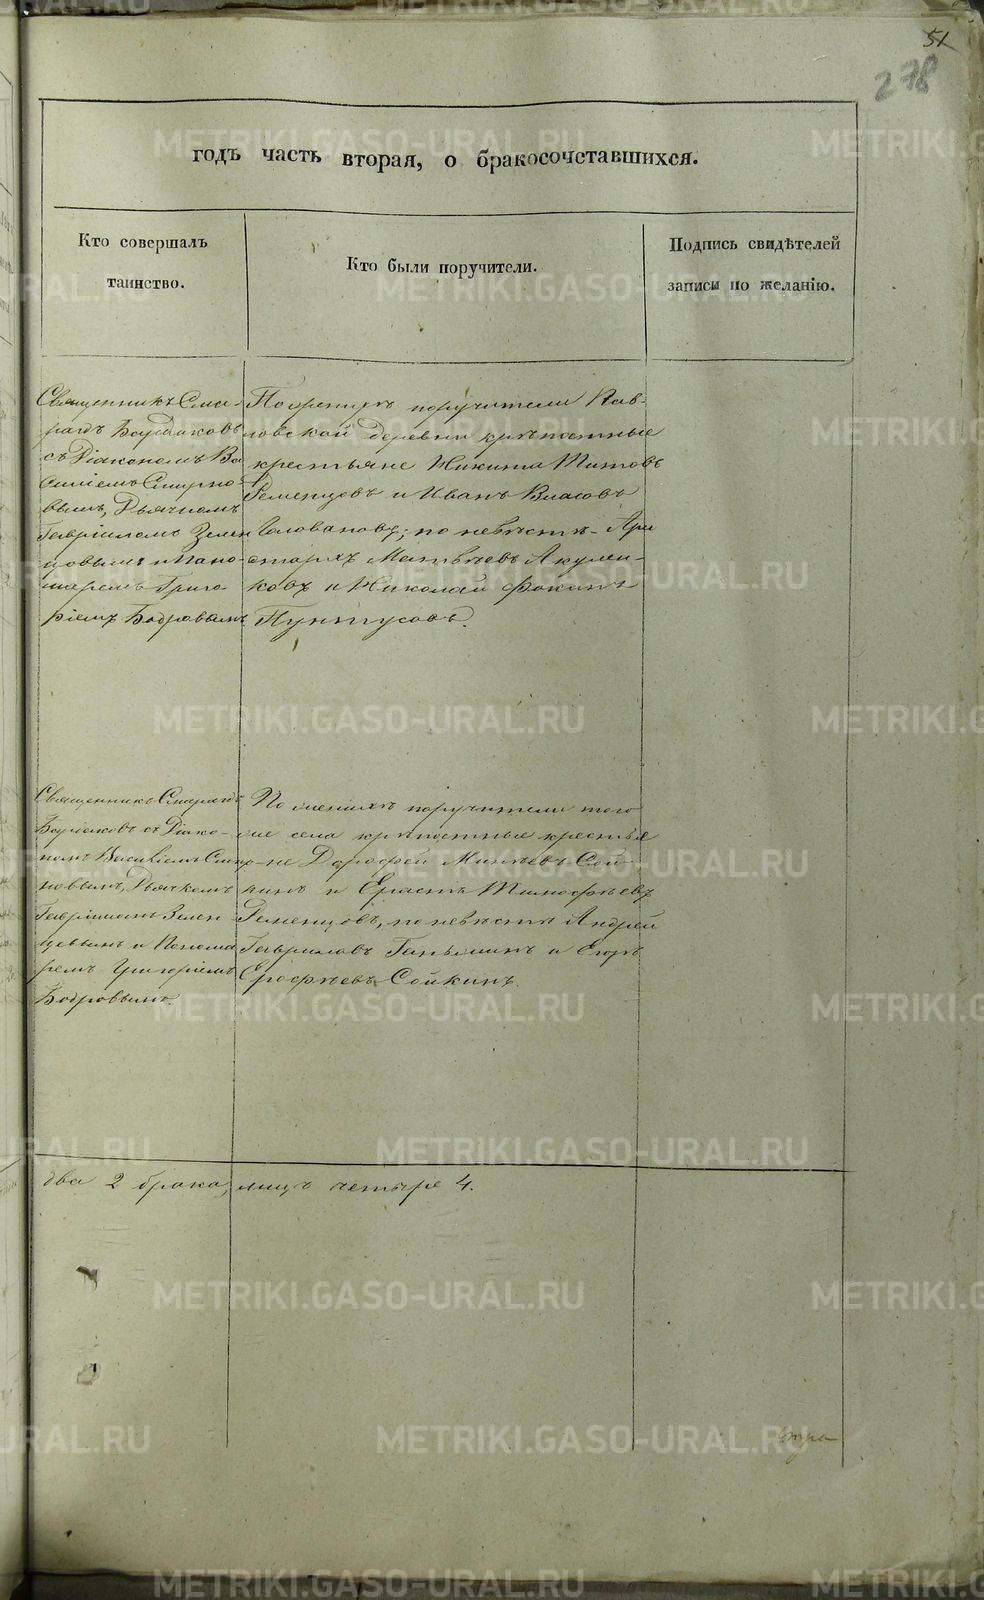 51
278
годъ часть вторая, о бракосочетавшихся.
Кто совершалъ
таинство.
Кто были поручители.
Подпись свидѣтелей
записи по желанію.
Священникъ Сма-
рагдъ Бурдаковъ
съ Діакономъ Ва
силіемъ Смирно-
вымъ, Дьячкомъ
Гавріиломъ Зелен
цовымъ и Поно-
маремъ Григо-
ріемъ Бобровымъ
По женихѣ поручители Пав-
ловской деревни крѣпостные
крестьяне Никита Титовъ
Деменцовъ и Иванъ Власовъ
Головановъ; по невѣстѣ - Ари
стархъ Матвѣевъ Акули-
ковъ и Николай Фокинъ
Пунтусовъ.
Священникъ Смарагдъ
Бурдаковъ съ Діако-
номъ Василіемъ Смир-
новымъ, Дьячкомъ
Гавріиломъ Зелен
цовымъ и Понома
ремъ Григоріемъ
Бобровымъ.
По женихѣ поручители того
же села крѣпостные крестья
не Дорофей Минѣевъ Сой-
кинъ и Ерастъ Тимофѣевъ
Деменцовъ, по невѣстѣ Андрей
Гавриловъ Ганьшинъ и Егоръ
Ерофѣевъ Сойкинъ.
два 2 брака, лицъ четыре 4.
METRIKI.GASO-URAL.RU